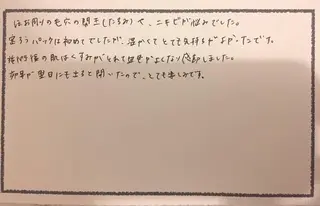 ほお周りの毛穴の開き(たるみ)や、ニキビが悩みでした。
パックは初めてでしたが、温かくてとても気持ちがよかったです。
施術後の肌はくすみがとれて血色がよくなり感動しました。
効果が翌日にも出ると聞いたので、とても楽しみです。